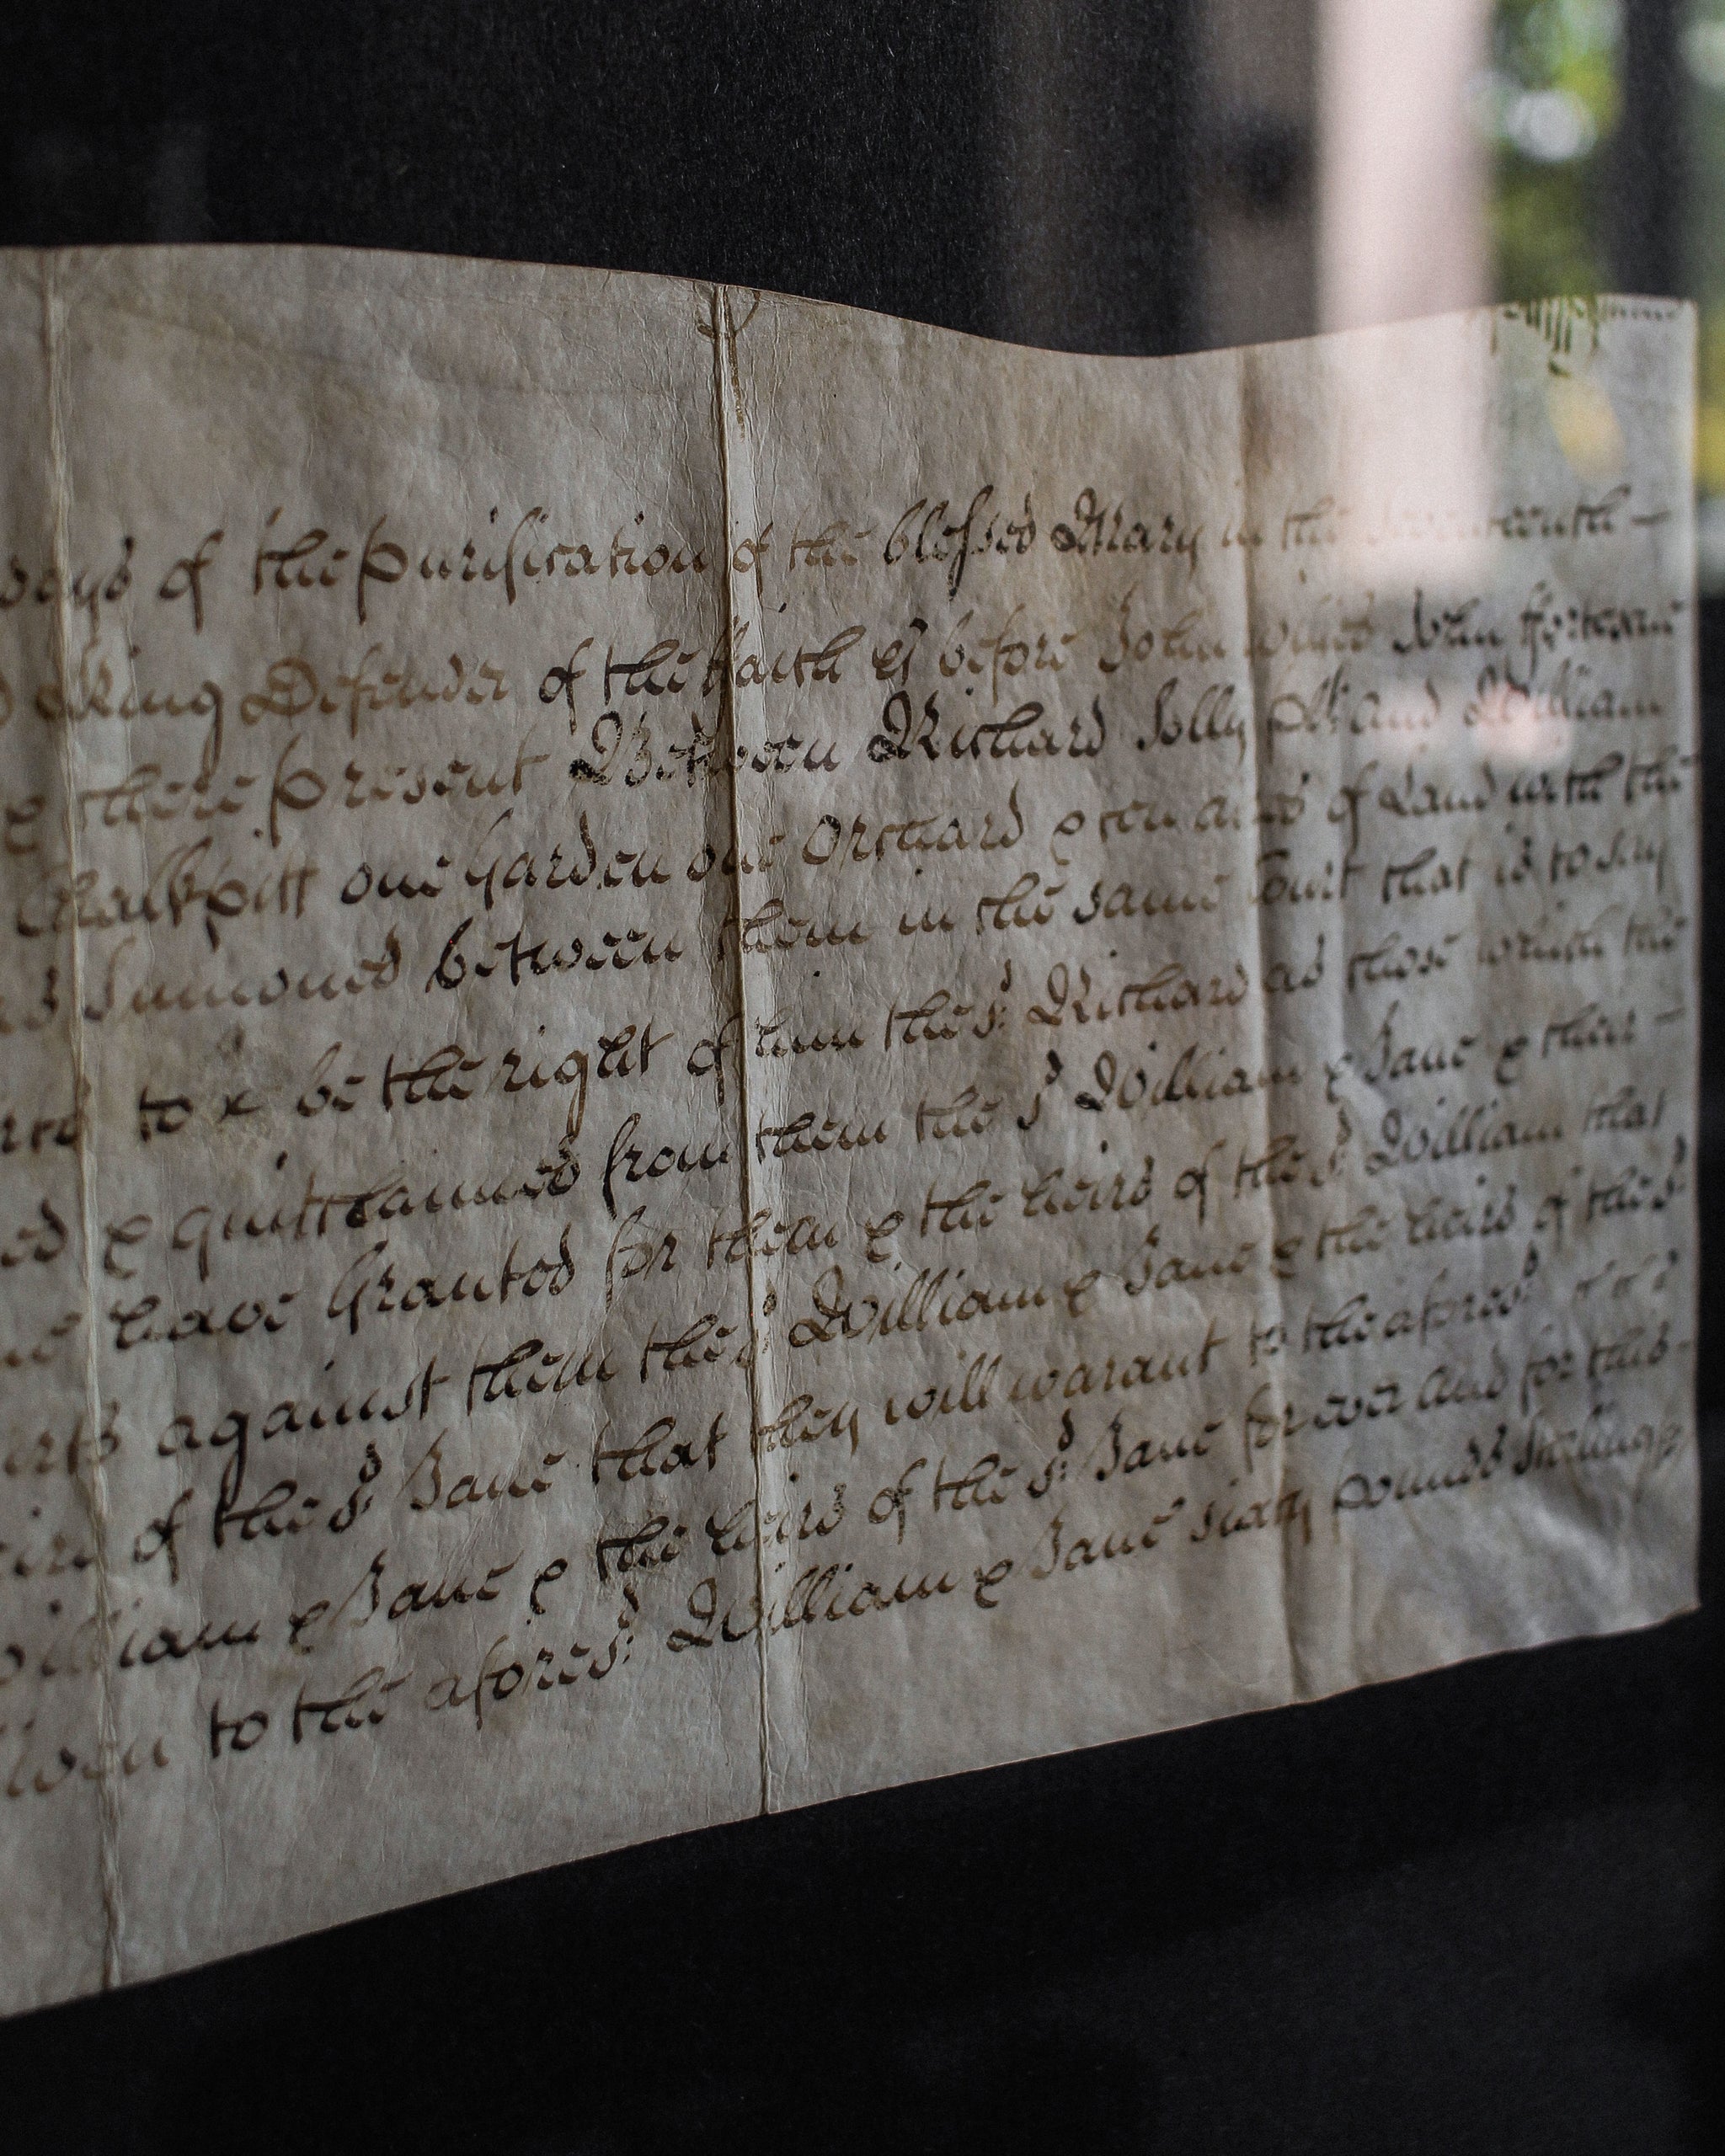 days of the Purification of the blessed Mary in the
King Defender of the faith &c before John John ffortescue
& there present Between Richard Jolly and William
Chalkpitt one Garden one Orchard & ten acres of Land with the
Sumoned between them in the same Court that is to say
to be the right of him the sd Richard as those which the
& quittclaimed from them the sd William & Jane & their
have Granted for them & the heirs of the sd William that
against them the sd William & Jane & the heirs of the sd
of the sd Jane that they will warant to the aforesd
William & Jane & the heirs of the sd: Jane for ever and for this
to the aforesd: William & Jane sixty pounds Sterling